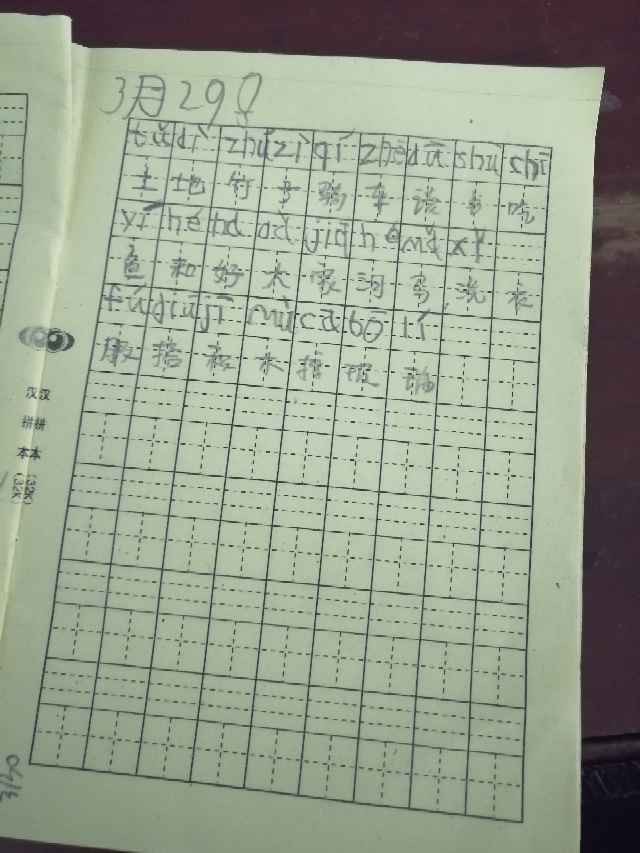 3月29日
tǔ dì zhú zi qí zhē dú shū chī
土 地 竹 子 骑 车 读 书 吃
yí hé hǎ dà jiā hé mǎ xǐ
鱼 和 好 大 家 河 马 洗 衣
fú dā jī mù cā bō lí
服 搭 积 木 擦 玻 璃
汉汉
拼拼
本本
(32K)
(32K)